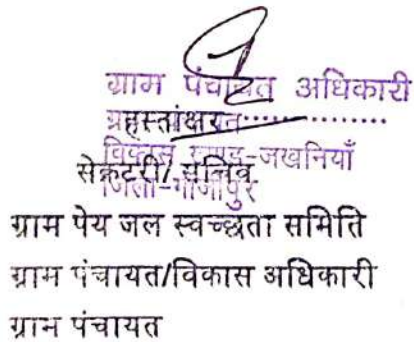 ग्राम पंचायत अधिकारी
हस्तांक्षर
विकास खण्ड-जखनियाँ
सेक्रटरी/ सचिव
जिला-गाजीपुर
ग्राम पेय जल स्वच्छता समिति
ग्राम पंचायत/विकास अधिकारी
ग्राम पंचायत